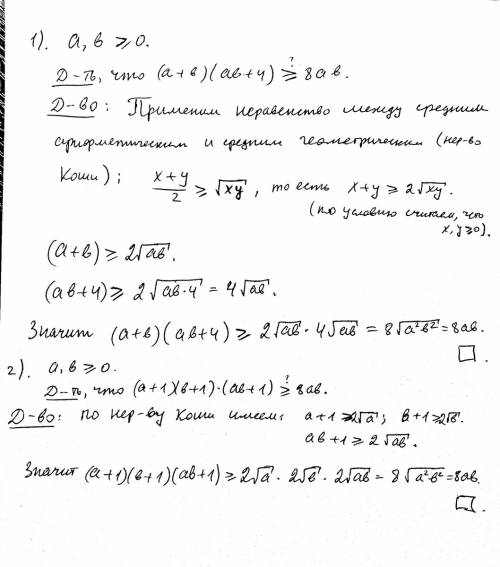 1). a, b ≥ 0.
Д-ть, что (a+b)(ab+4) ≥? 8ab.
Д-во: Применим неравенство между средним
арифметическим и средним геометрическим (нер-во
Коши); (x+y)/2 ≥ √xy, то есть x+y ≥ 2√xy.
(по условию считаем, что
x, y ≥ 0).
(a+b) ≥ 2√ab.
(ab+4) ≥ 2√ab·4 = 4√ab.
Значит (a+b)(ab+4) ≥ 2√ab · 4√ab = 8√a²b² = 8ab.
□.
2). a, b ≥ 0.
Д-ть, что (a+1)(b+1)·(ab+1) ≥? 8ab.
Д-во: по нер-ву Коши имеем: a+1 ≥ 2√a; b+1 ≥ 2√b.
ab+1 ≥ 2√ab.
Значит (a+1)(b+1)(ab+1) ≥ 2√a · 2√b · 2√ab = 8√a²b² = 8ab.
□.